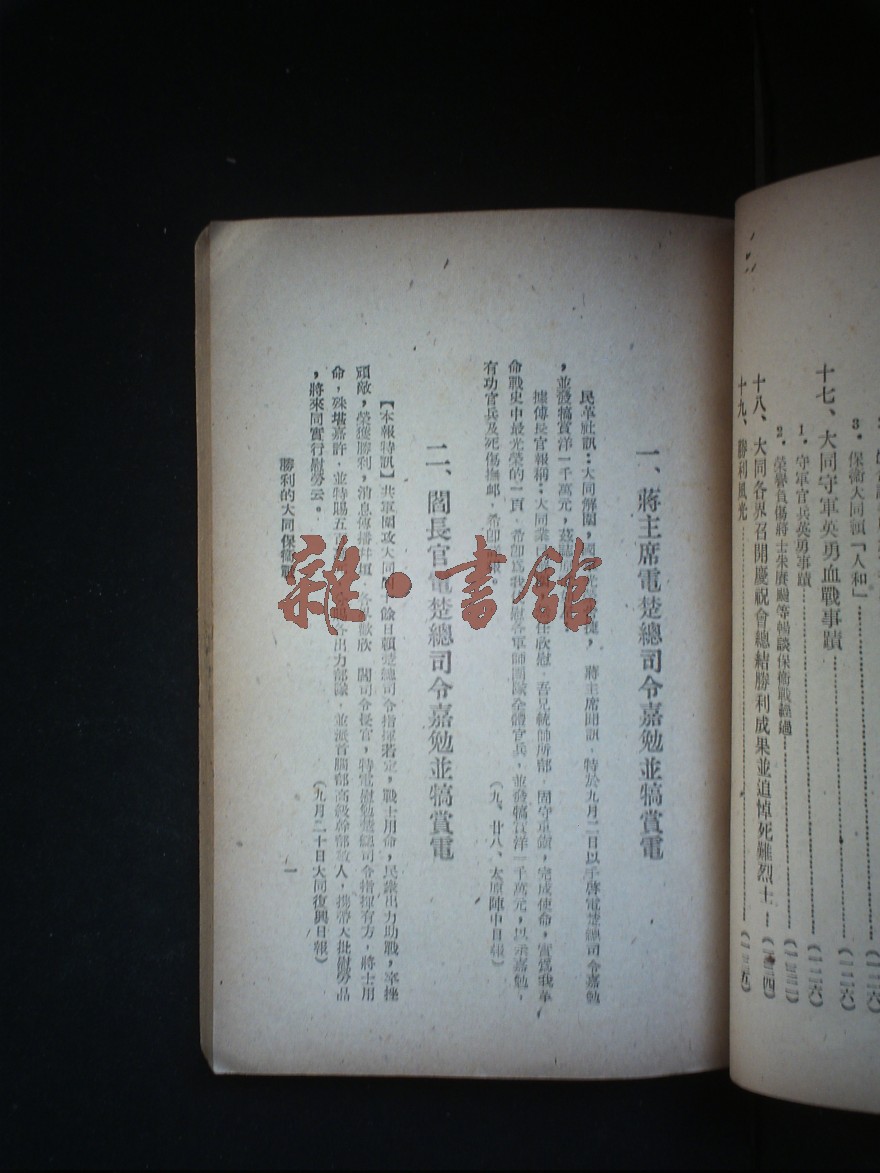 3．保衛大同頌「人和」………(一二六)
十七、大同守軍英勇血戰事蹟………(一二六)
1．守軍官兵英勇事蹟………(一二六)
2．榮譽負傷將士朱賡颺等暢談保衛戰經過………(一三二)
十八、大同各界召開慶祝會總結勝利成果並追悼死難烈士…(一三四)
十九、勝利風光………(一三五)
一、蔣主席電楚總司令嘉勉並犒賞電
民革社訊：大同解圍，蔣主席聞訊，特於九月二日以手啓電楚總司令嘉勉
，並發犒賞洋一千萬元，茲
據傅長官報稱：大同業欣慰，吾兄統帥所部，固守重鎮，完成使命，實爲我革
命戰史中最光榮的一頁，希卽爲我慰各軍師團隊全體官兵，並發犒賞洋一千萬元，以示嘉勉，
有功官兵及死傷撫卹，希卽
(九、廿八、太原陣中日報)
二、閻長官電楚總司令嘉勉並犒賞電
【本報特訊】共軍圍攻大同餘日賴楚總司令指揮若定，戰士用命，民衆出力助戰，卒挫
頑敵，榮獲勝利，消息傳播幷垣，歡欣　閻司令長官，特電慰勉楚總司令指揮有方，將士用
命，殊堪嘉許，並特賜五各出力部隊，並派首腦部高級幹部數人，携帶大批慰勞品
，將來同實行慰勞云。
(九月二十日大同復興日報)
勝利的大同保衛戰
一
雜·書館